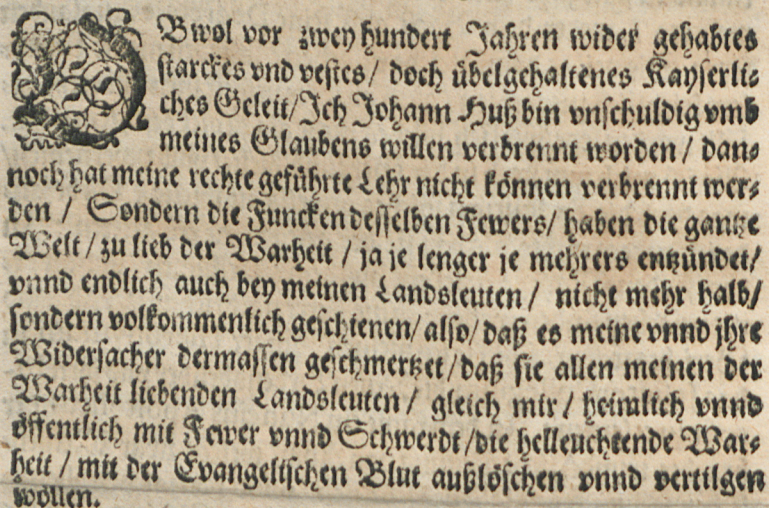 OBwol vor zwey hundert Jahren wider gehabtes
starckes vnd vestes / doch übelgehaltenes Kayserli⸗
ches Geleit / Ich Johann Huß bin vnschuldig vmb
meines Glaubens willen verbrennt worden / dan⸗
noch hat meine rechte geführte Lehr nicht können verbrennt wer⸗
den / Sondern die Funcken desselben Fewers / haben die gantze
Welt / zu lieb der Warheit / ja je lenger je mehrers entzündet /
vnnd endlich auch bey meinen Landsleuten / nicht mehr halb /
sondern volkommentlich geschienen / also / daß es meine vnnd jhre
Widersacher dermassen geschmertzet / daß sie allen meinen der
Warheit liebenden Landsleuten / gleich mir / heimlich vnnd
öffentlich mit Fewer vnnd Schwerdt / die helleuchtende War⸗
heit / mit der Evangelischen Blut außlöschen vnnd vertilgen
wöllen.